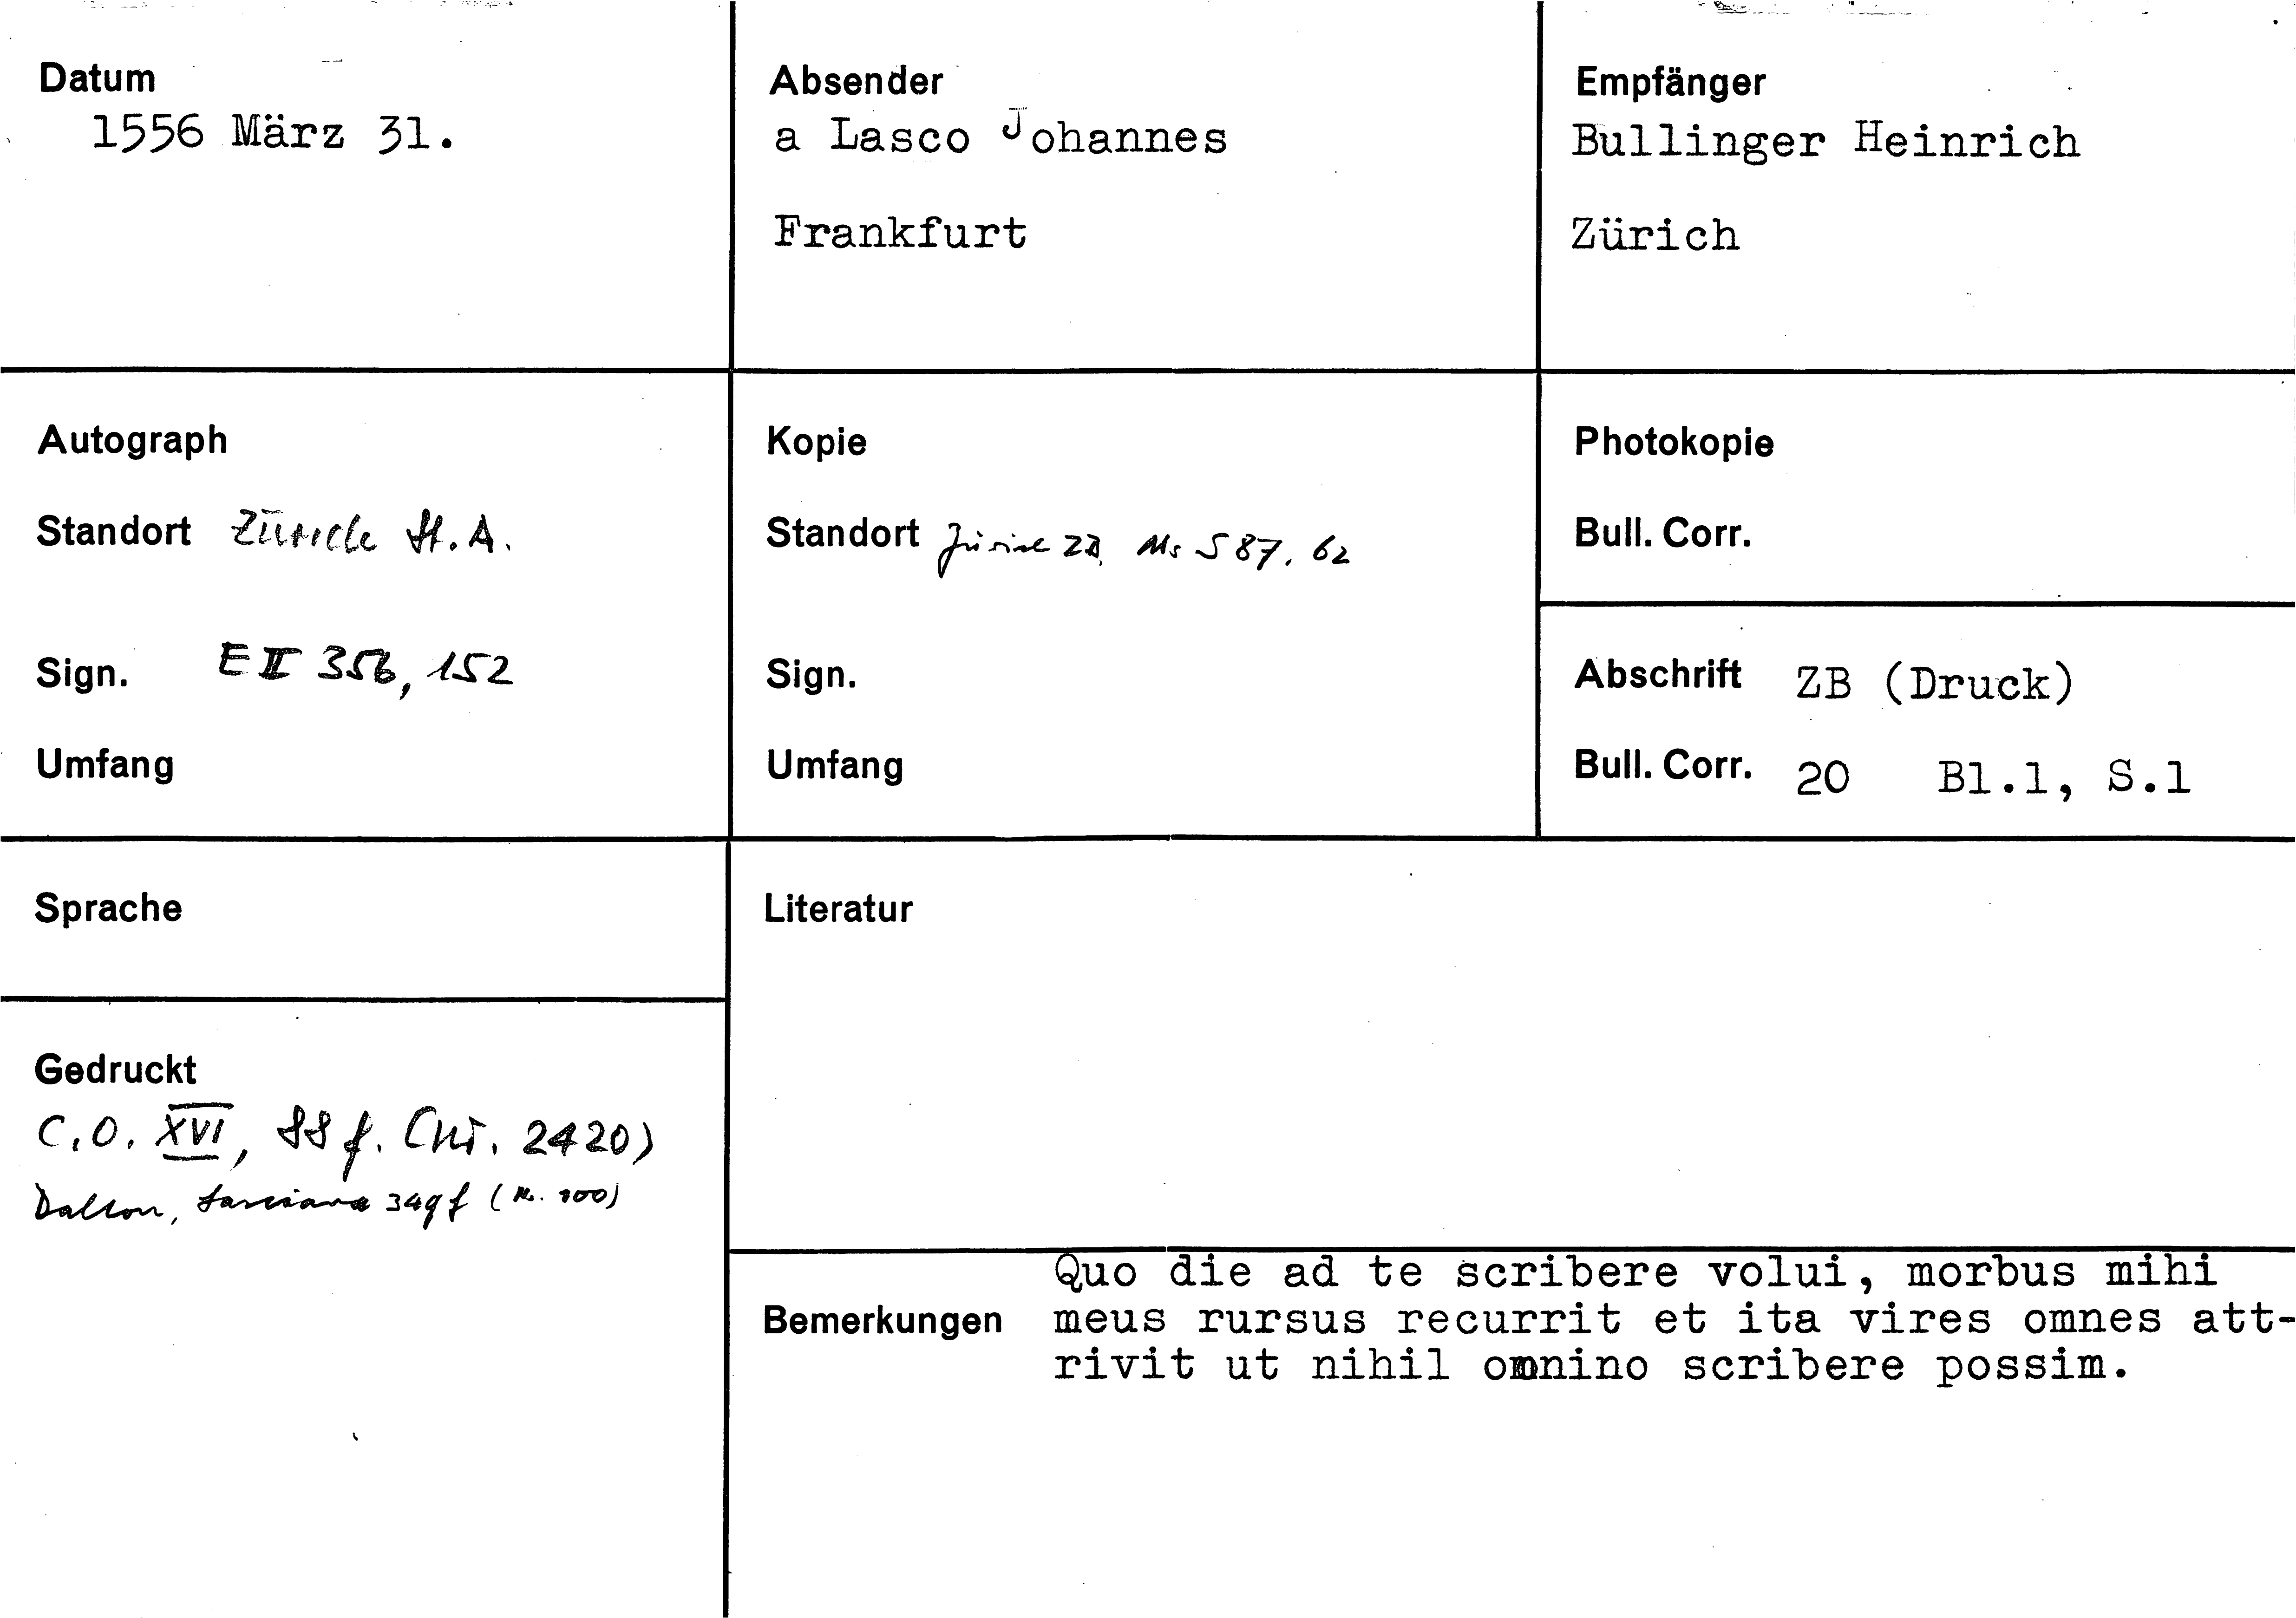 Datum
1556 März 31.
Absender
a Lasco Johannes
Frankfurt
Empfänger
Bullinger Heinrich
Zürich
Autograph
Standort Zürich St.A.
Sign. E II 356, 152
Umfang
Kopie
Standort Zürich ZB, Ms S 87, 62
Sign.
Umfang
Photokopie
Bull. Corr.
Abschrift ZB (Druck)
Bull. Corr. 20 Bl.1, S.1
Sprache
Literatur
Gedruckt
C.O. XVI, 88 f. (Nr. 2420)
Dalton, Lasciana 349 f (Nr. 100)
Bemerkungen
Quo die ad te scribere volui, morbus mihi
meus rursus recurrit et ita vires omnes att-
rivit ut nihil omnino scribere possim.